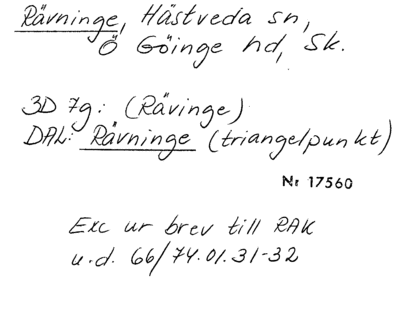 Rävninge, Hästveda sn,
Ö Göinge hd, Sk.
3D 7g: (Rävinge)
DAL: Råvninge (triangelpunkt)
Nr 17560
Exc ur brev till RAK
u.d. 66/74.01.31-32